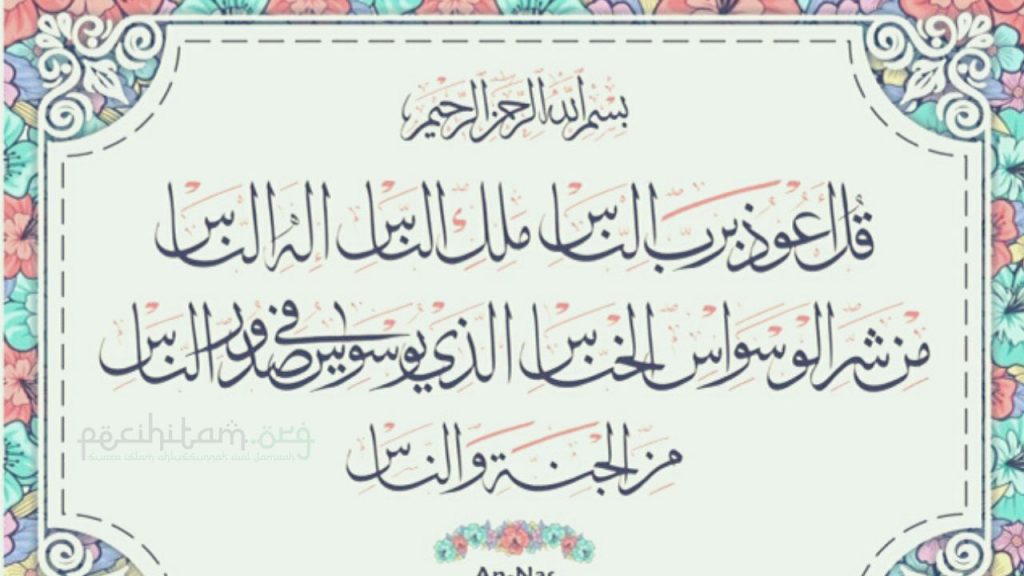 بسم الله الرحمن الرحيم
قُل أعوذ برب الناس ملك الناس إله الناس
من شر الوسواس الخناس الذي يوسوس في صدور الناس
من الجنة والناس
pecihitam.org
An-Nas